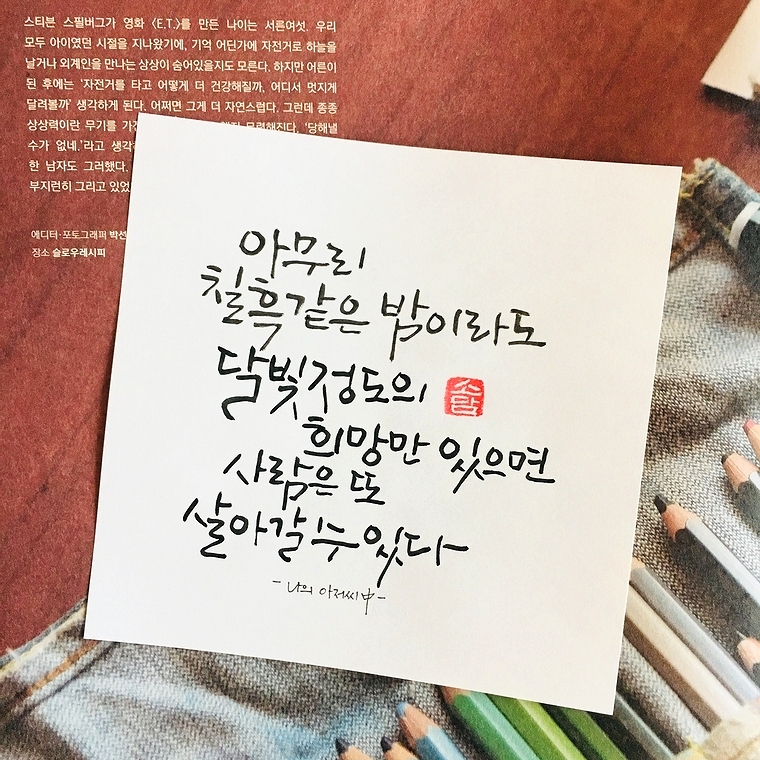 스티븐 스필버그가 영화 〈E.T.〉를 만든 나이는 서른여섯. 우리
모두 아이였던 시절을 지나왔기에, 기억 어딘가에 자전거로 하늘을
날거나 외계인을 만나는 상상이 숨어있을지도 모른다. 하지만 어른이
된 후에는 '자전거를 타고 어떻게 더 건강해질까, 어디서 멋지게
달려볼까' 생각하게 된다. 어쩌면 그게 더 자연스럽다. 그런데 종종
상상력이란 무기를 무력해진다. '당해낼
수가 없네.'라고
한 남자도 그러했다.
부지런히 그리고 있었
에디터·포토그래퍼 박선
장소 슬로우레시피
아무리
칠흑같은 밤이라도
달빛정도의
소담
희망만 있으면
사람은 또
살아갈 수 있다
- 나의 아저씨 中 -